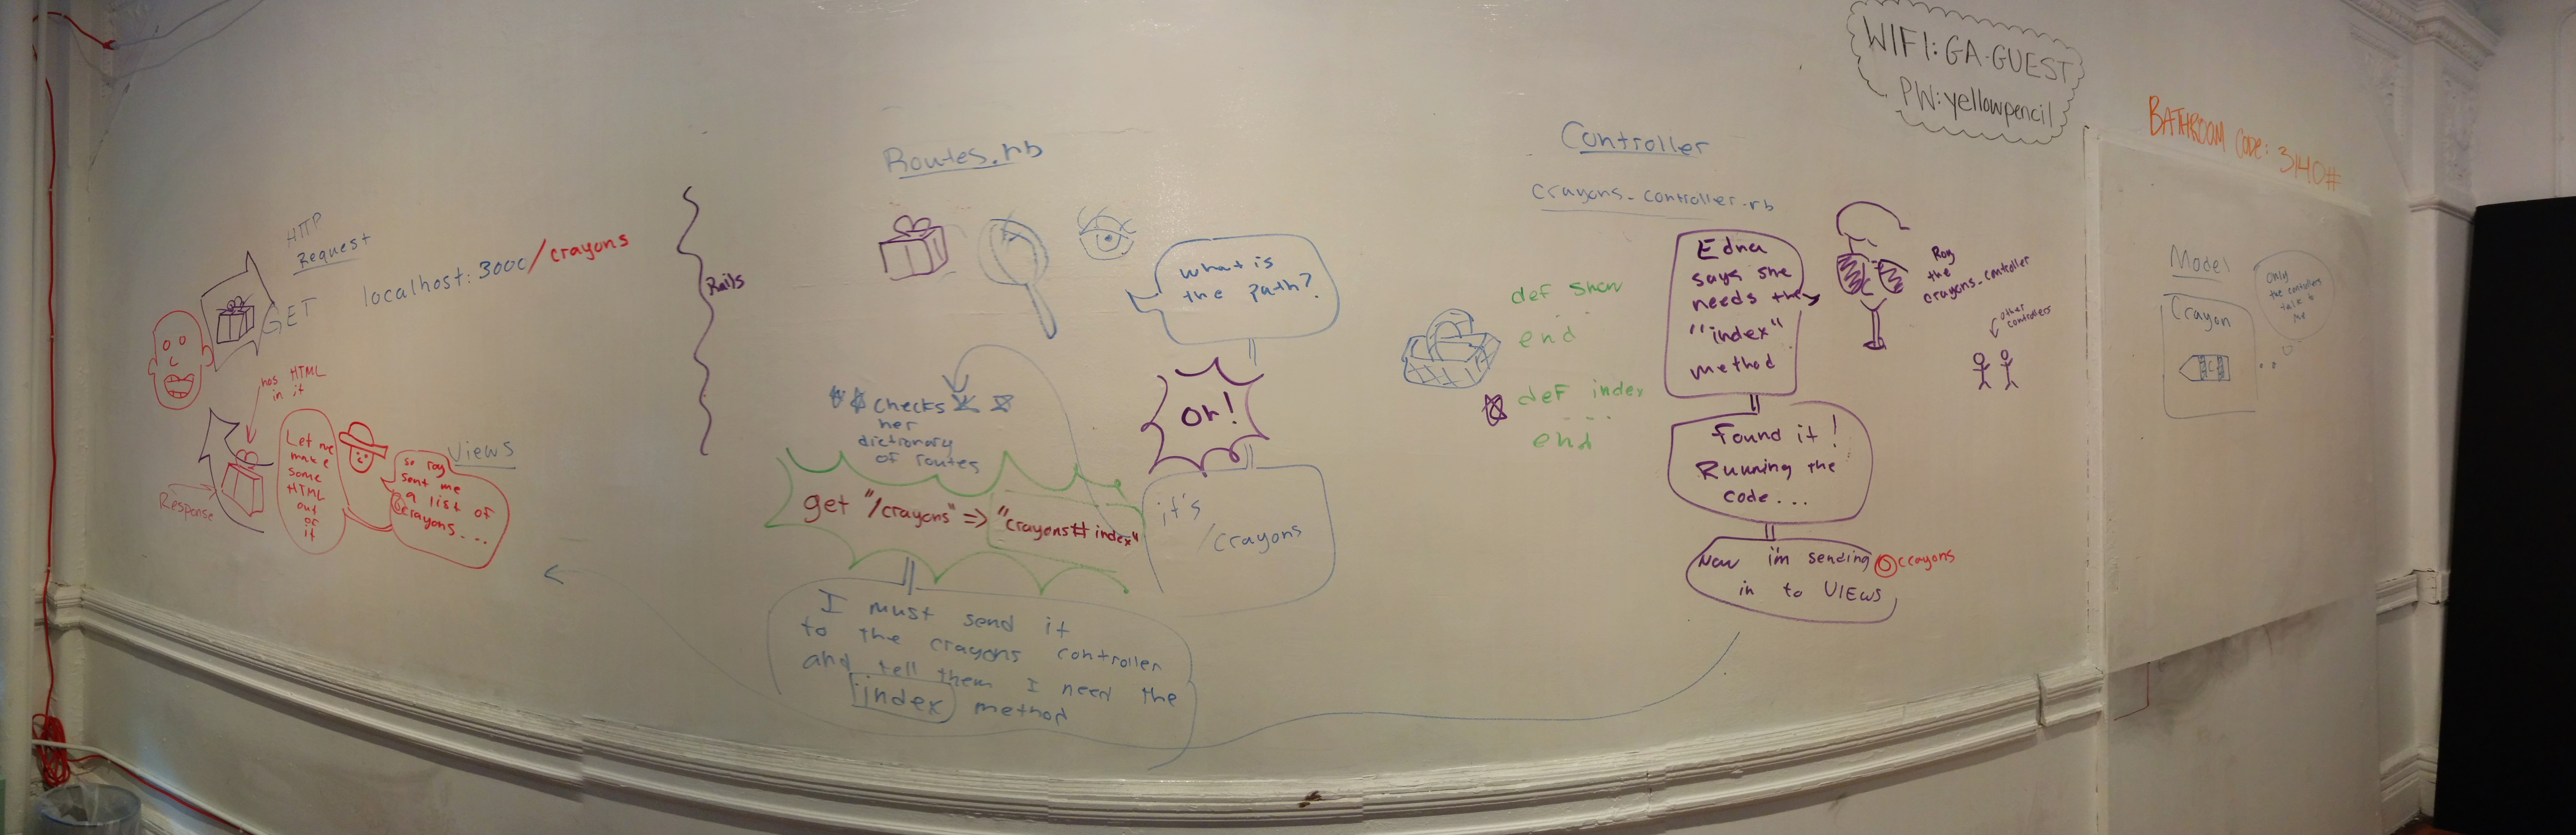 HTTP
Request
GET localhost:3000/crayons
has HTML
in it
Response
Let me
make
some
HTML
out
of
it
Views
so roy
sent me
a list of
@crayons...
Rails
Routes.rb
what is
the path?
Oh!
it's
/crayons
checks
her
dictionary
of routes
get "/crayons" => "crayons#index"
I must send it
to the crayons controller
and tell them I need the
index method
Controller
crayons_controller.rb
def show
end
def index
....
end
Edna
says she
needs the
"index"
method
Roy
the
crayons_controller
other
controllers
Found it!
Running the
code...
Now i'm sending @crayons
in to VIEWS
WIFI: GA-GUEST
PW: yellowpencil
BATHROOM CODE: 3140#
Model
Crayon
C
Only
the controllers
talk to
me